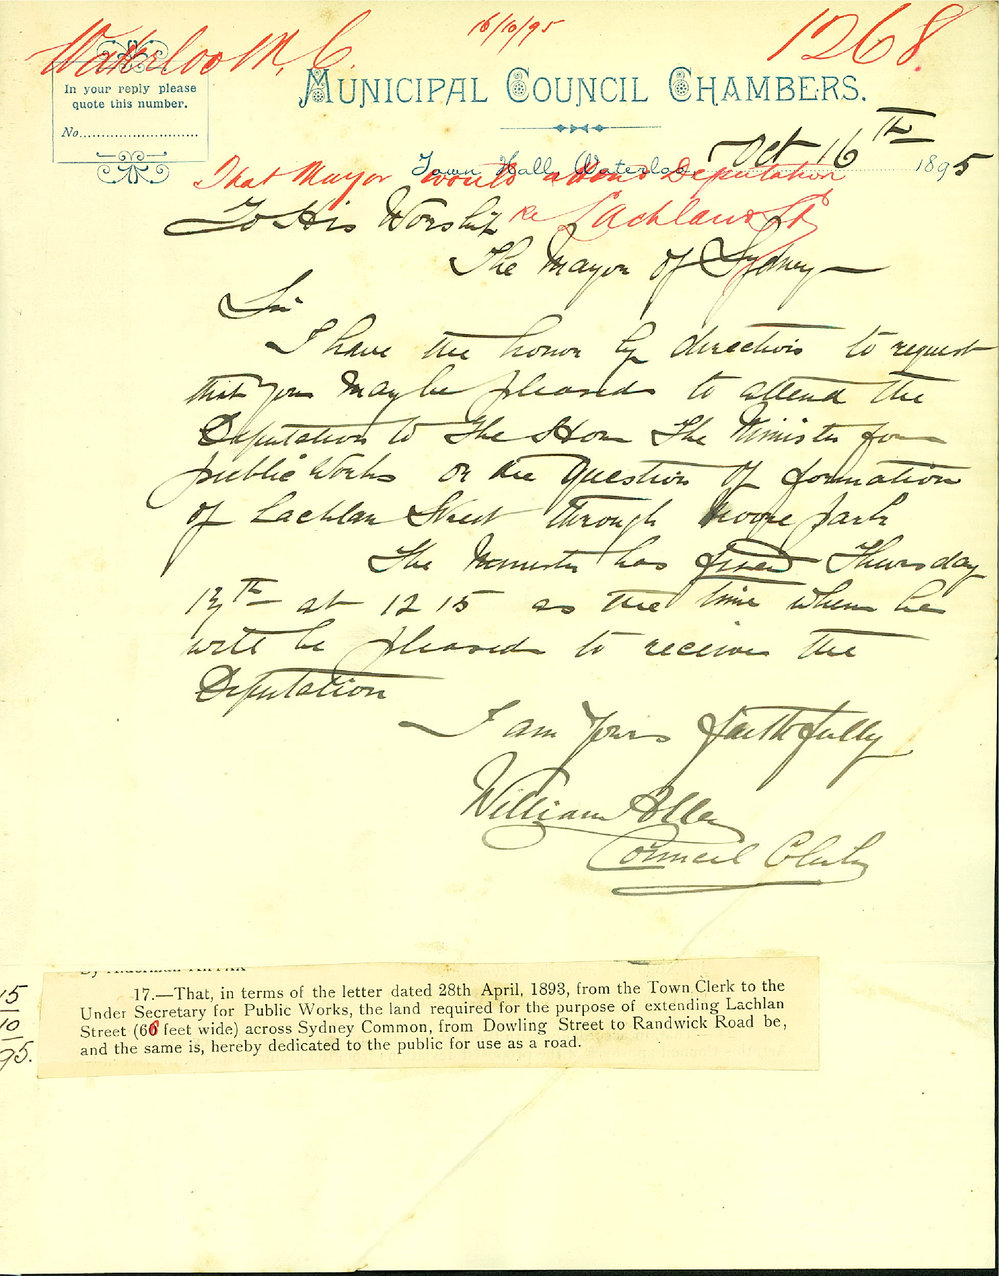 Waterloo M. C.
16/10/95
1268.
In your reply please
quote this number.
No.
MUNICIPAL COUNCIL CHAMBERS.
Town Hall, Waterloo Oct 16th 1895
That Mayor would attend Deputation
re Lachlan St
To His Worship
The Mayor of Sydney
Sir
I have the honor by direction to request
that you may be pleased to attend the
Deputation to The Hon The Minister for
public Works on the Question of formation
of Lachlan Street through Moore park
The Minister has fixed Thursday
17th at 12 15 as the time when he
will be pleased to receive the
Deputation
I am Yours faithfully
William Allen
Council Clerk
17.—That, in terms of the letter dated 28th April, 1893, from the Town Clerk to the
Under Secretary for Public Works, the land required for the purpose of extending Lachlan
Street (66 feet wide) across Sydney Common, from Dowling Street to Randwick Road be,
and the same is, hereby dedicated to the public for use as a road.
15
10
95.